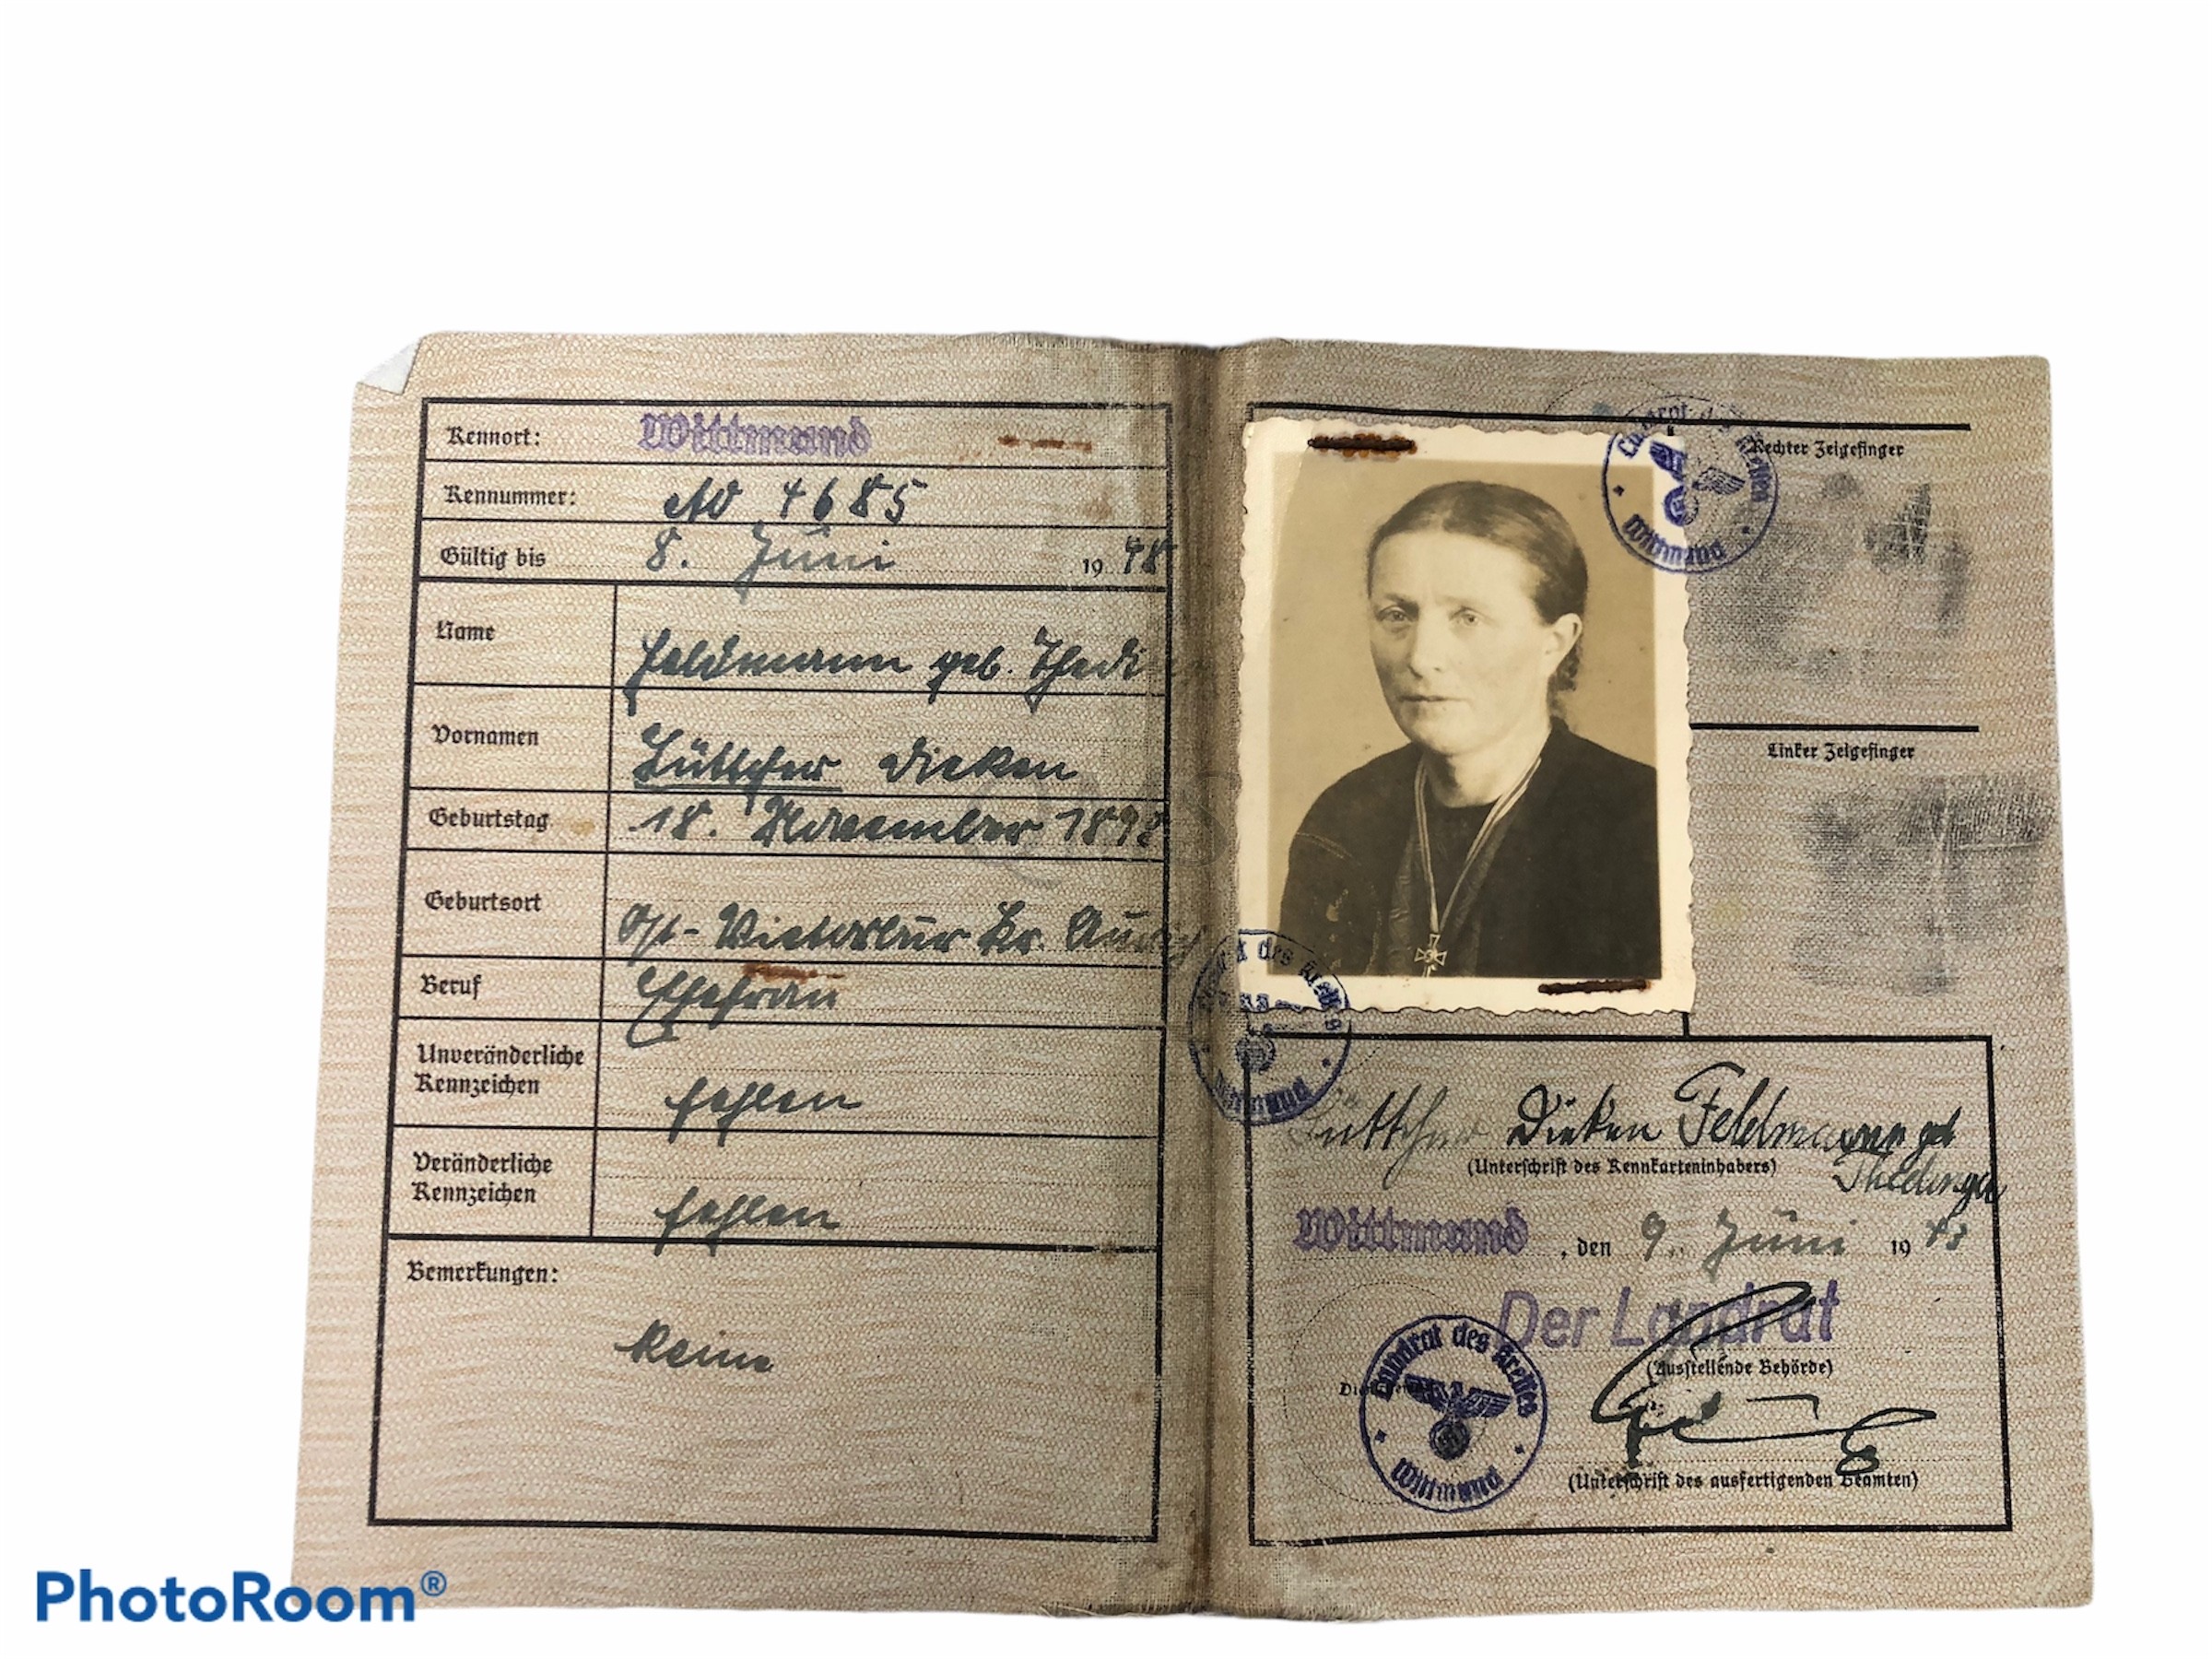 Kennort: Wittmund
Kennummer: A0 4685
Gültig bis 8. Juni 1948
Name Feldmann geb. Thedi
Vornamen Lüttcher Dieken
Geburtstag 18. November 1898
Geburtsort Ost-Victorbur Kr. Aurich
Beruf Ehefrau
Unveränderliche
Kennzeichen fehlen
Veränderliche
Kennzeichen fehlen
Bemerkungen:
keine
Landrat des Kreises
Wittmund
Rechter Zeigefinger
Linker Zeigefinger
des Kreises
Wittmund
Lüttcher Dieken Feldmann geb
(Unterschrift des Kennkarteninhabers)
Thedinga
Wittmund, den 9. Juni 1943
Der Landrat
(Ausstellende Behörde)
Landrat des Kreises
Wittmund
(Unterschrift des ausfertigenden Beamten)
PhotoRoom®